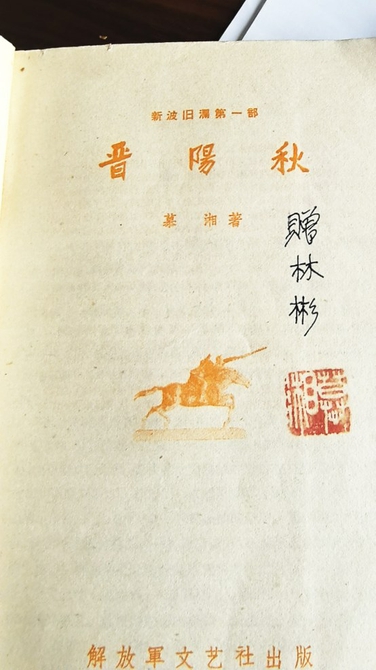 新波旧澜第一部
晋陽秋
慕湘著
贈林彬
慕湘
解放軍文艺社出版